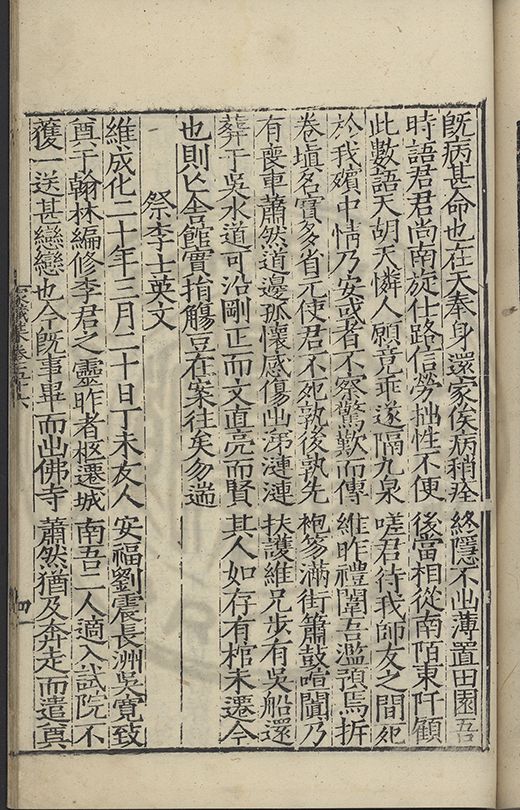 既病甚命也在天奉身還家俟病稍痊終隱不出薄置田園吾
時語君君尚南旋仕路信勞拙性不便後當相從南陌東阡顧
此數語天胡天憐人願竟乖遂隔九泉嗟君待我師友之間死
於我殯中情乃安或者不察驚歎而傳維昨禮闈吾濫預焉拆
卷塡名實多省元使君不死孰後孰先袍笏滿街簫鼓喧闐乃
有喪車蕭然道邊孤懷感傷出涕漣漣扶護維兄步有吳船還
葬于吳水道可沿剛正而文直亮而賢其人如存有棺未遷今
也則亾舍館實捐觴豆在案往矣勿遄
祭李士英文
維成化二十年三月二十日丁未友人安福劉震長洲吳寬致
奠于翰林編修李君之靈昨者柩遷城南吾二人適入試院不
獲一送甚戀戀也今既事畢而出佛寺蕭然猶及奔走而遣奠